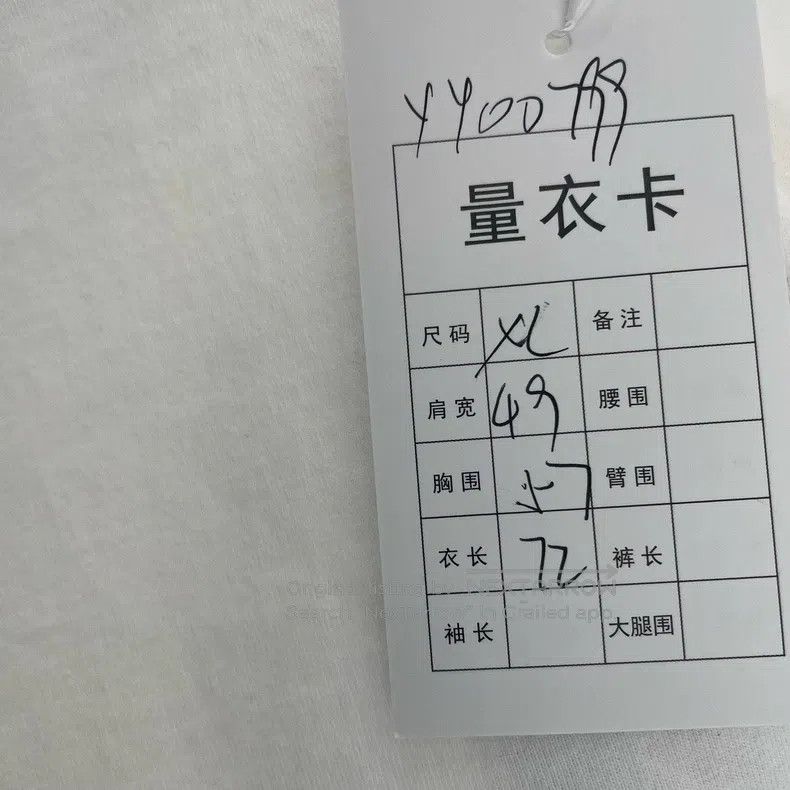 YY00799
量衣卡
尺码 XL 备注
肩宽 49 腰围
胸围 57 臂围
衣长 72 裤长
袖长 大腿围
NEXTARROW
Search "Nextarrow" in Grailed app